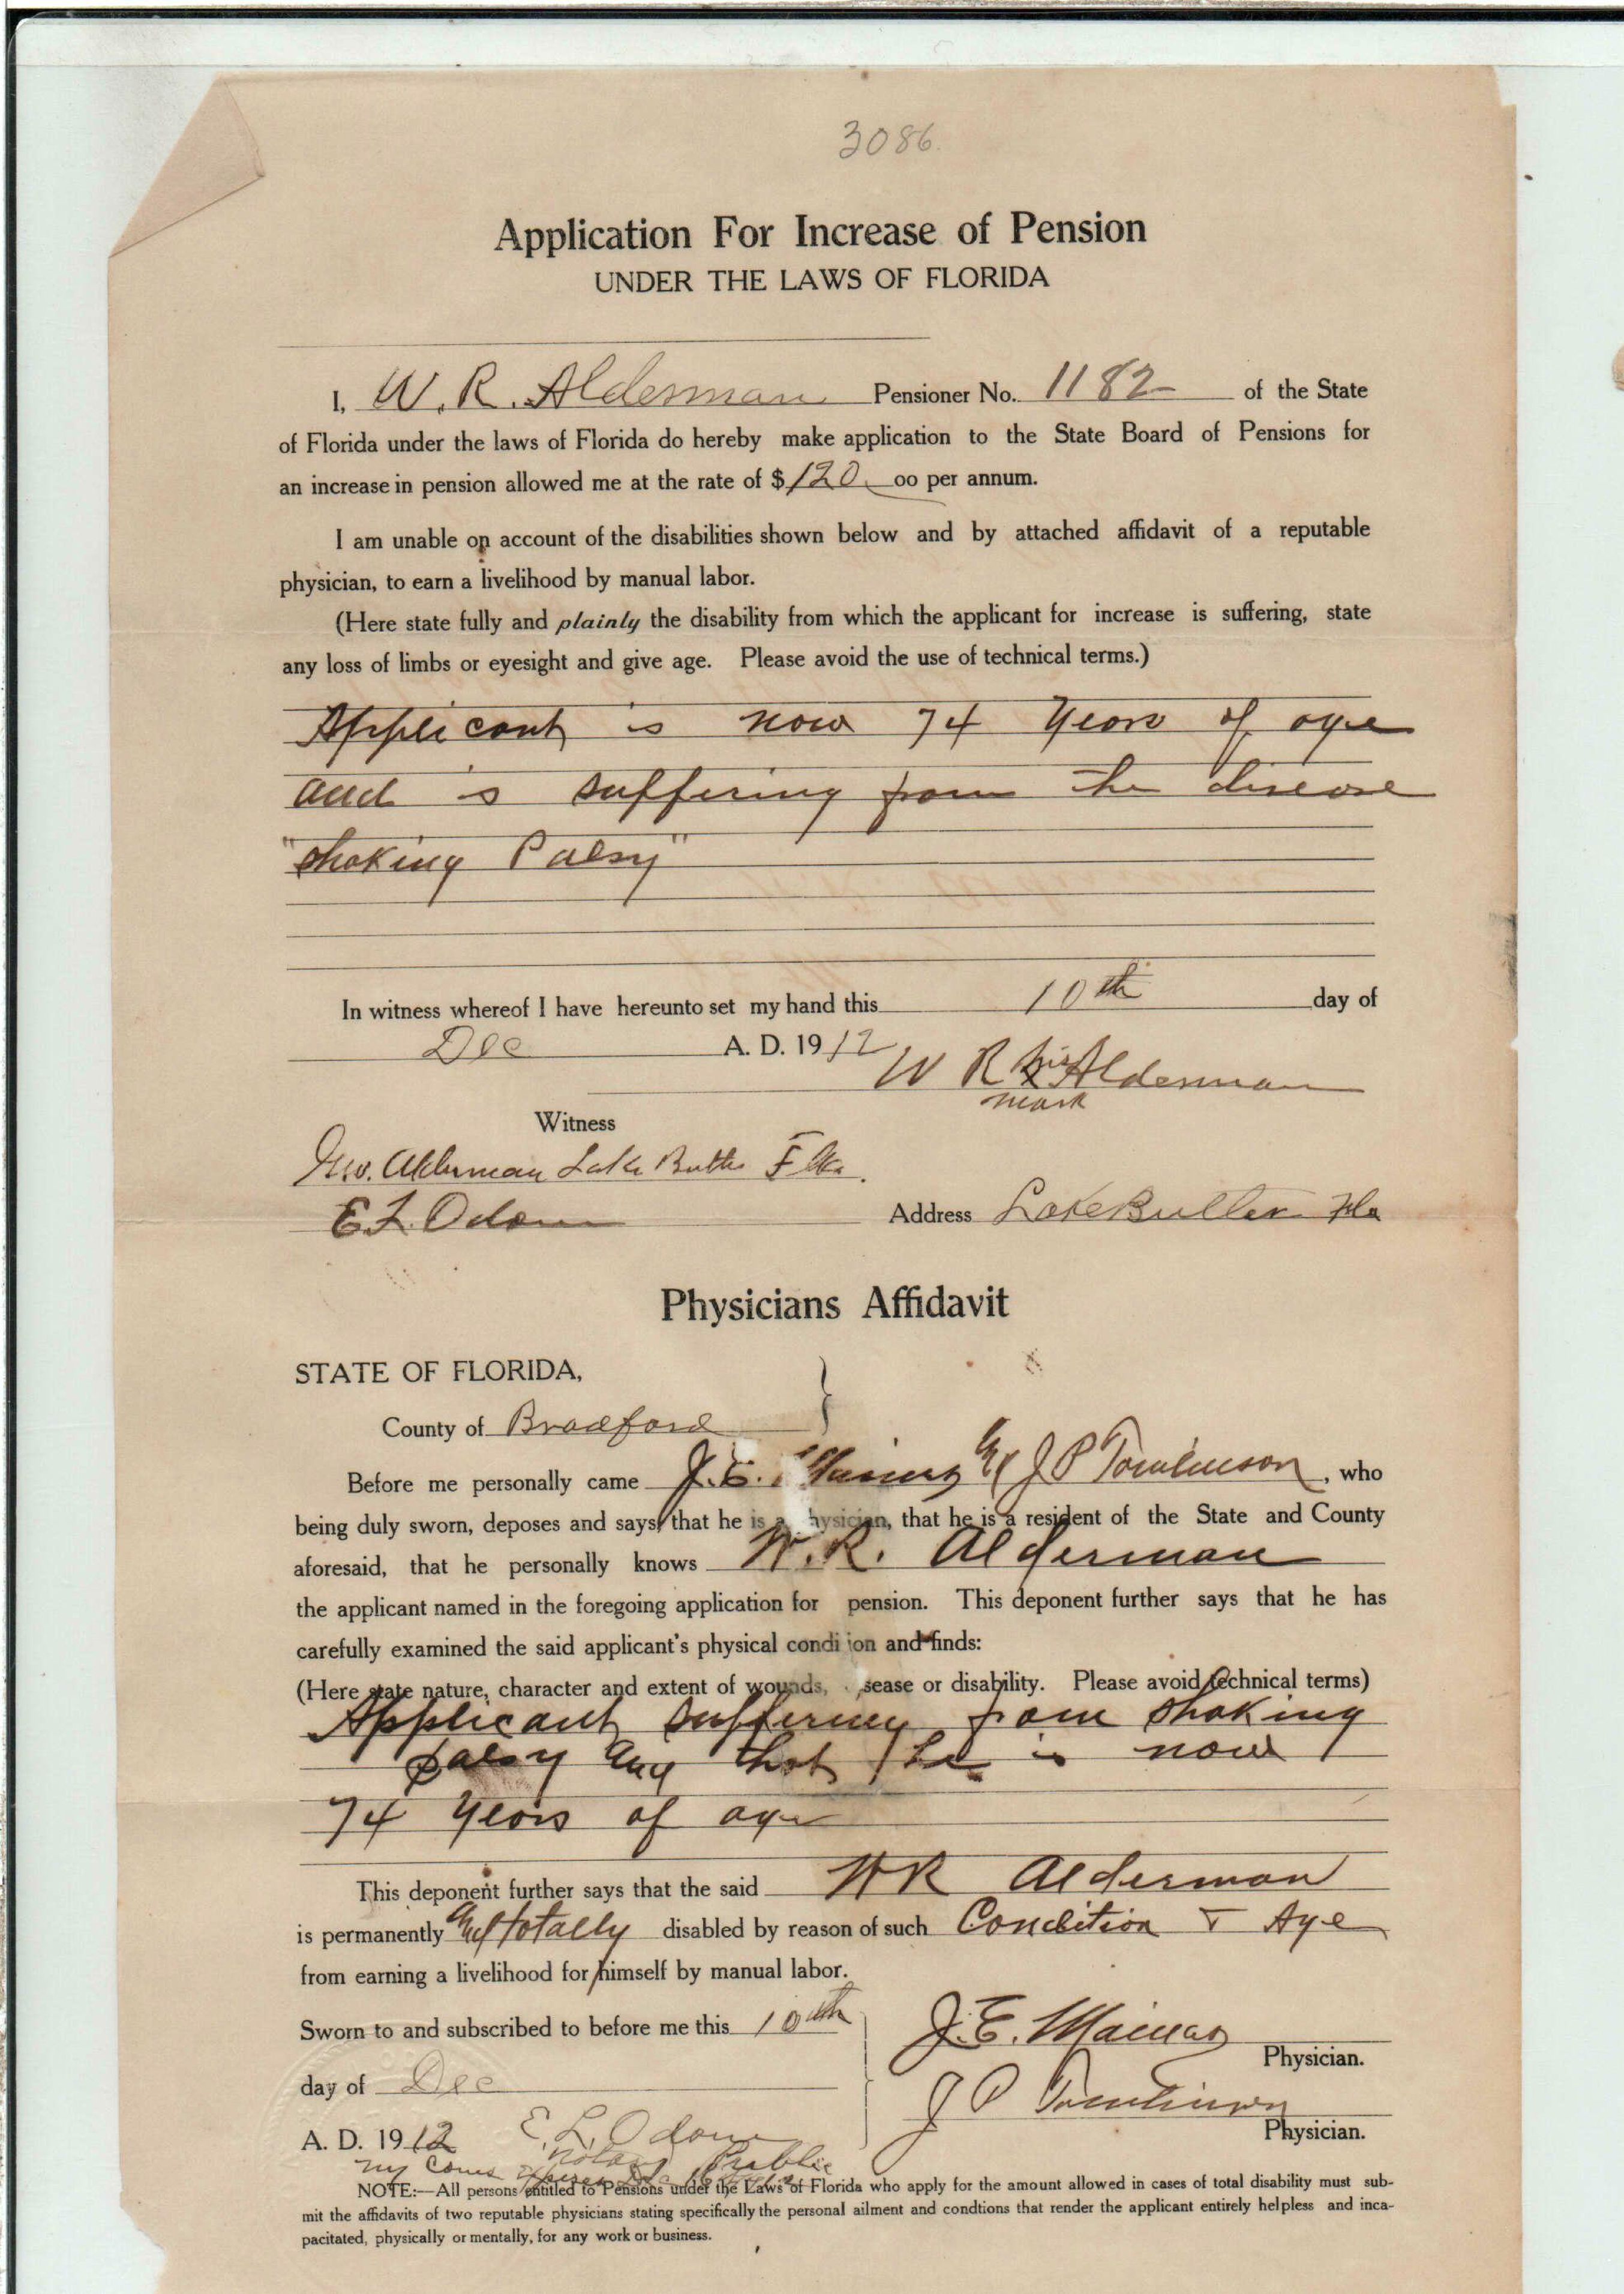 3086.
Application For Increase of Pension
UNDER THE LAWS OF FLORIDA
I, W. R. Alderman Pensioner No. 1182 of the State
of Florida under the laws of Florida do hereby make application to the State Board of Pensions for
an increase in pension allowed me at the rate of $120. 00 per annum.
I am unable on account of the disabilities shown below and by attached affidavit of a reputable
physician, to earn a livelihood by manual labor.
(Here state fully and plainly the disability from which the applicant for increase is suffering, state
any loss of limbs or eyesight and give age. Please avoid the use of technical terms.)
Applicant is now 74 years of age
and is suffering from the disease
"shaking Palsy"
In witness whereof I have hereunto set my hand this 10th day of
Dec A. D. 1912
W R his x Alderman
mark
Witness
Alderman Lake Butler Fla.
E L Odom Address Lake Butler Fla
Physicians Affidavit
STATE OF FLORIDA,
County of Bradford }
Before me personally came J. E. Maines and J P Tomlinson, who
being duly sworn, deposes and says that he is a hysician, that he is a resident of the State and County
aforesaid, that he personally knows W. R. Alderman
the applicant named in the foregoing application for pension. This deponent further says that he has
carefully examined the said applicant's physical condi ion and finds:
(Here state nature, character and extent of wounds, sease or disability. Please avoid technical terms)
Applicant suffering from shaking
palsy and that he is now
74 years of age
This deponent further says that the said W R Alderman
is permanently and totally disabled by reason of such Condition & Age
from earning a livelihood for himself by manual labor.
Sworn to and subscribed to before me this 10th
J. E. Maines
Physician.
day of Dec
J P Tomlinson
Physician.
A. D. 1912 E. L. Odom
Notary Public
my Coms expires
NOTE:—All persons entitled to Pensions under the Laws of Florida who apply for the amount allowed in cases of total disability must sub-
mit the affidavits of two reputable physicians stating specifically the personal ailment and condtions that render the applicant entirely helpless and inca-
pacitated, physically or mentally, for any work or business.